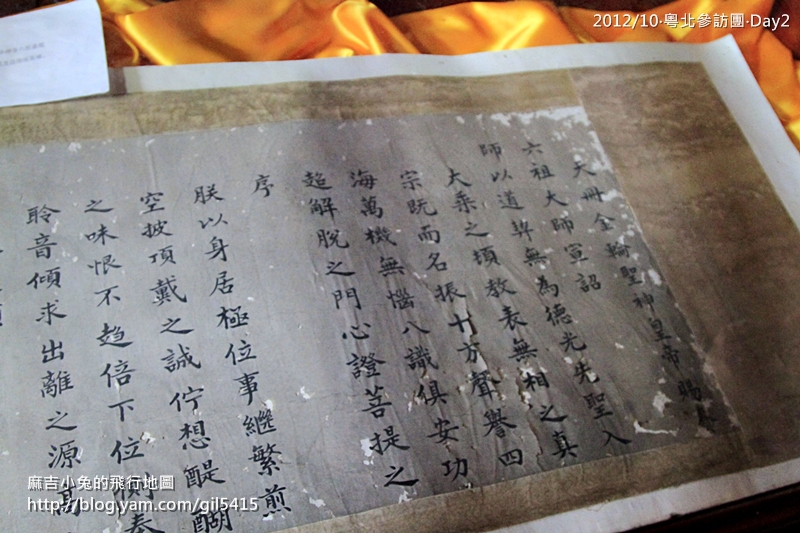 2012/10·粵北參訪團·Day2
天冊金輪聖神皇帝賜
六祖大師宣詔
師以道契無為德光先聖入
大乗之頓教表無相之真
宗既而名振十方聲譽四
海萬機無惱八識俱安功
超解脫之門心證菩提之
序
朕以身居極位事繼繁煎
空披頂戴之誠佇想醍醐
之味恨不趨倍下位側奉
聆音傾求出離之源高
麻吉小兔的飛行地圖
http://blog.yam.com/gil5415